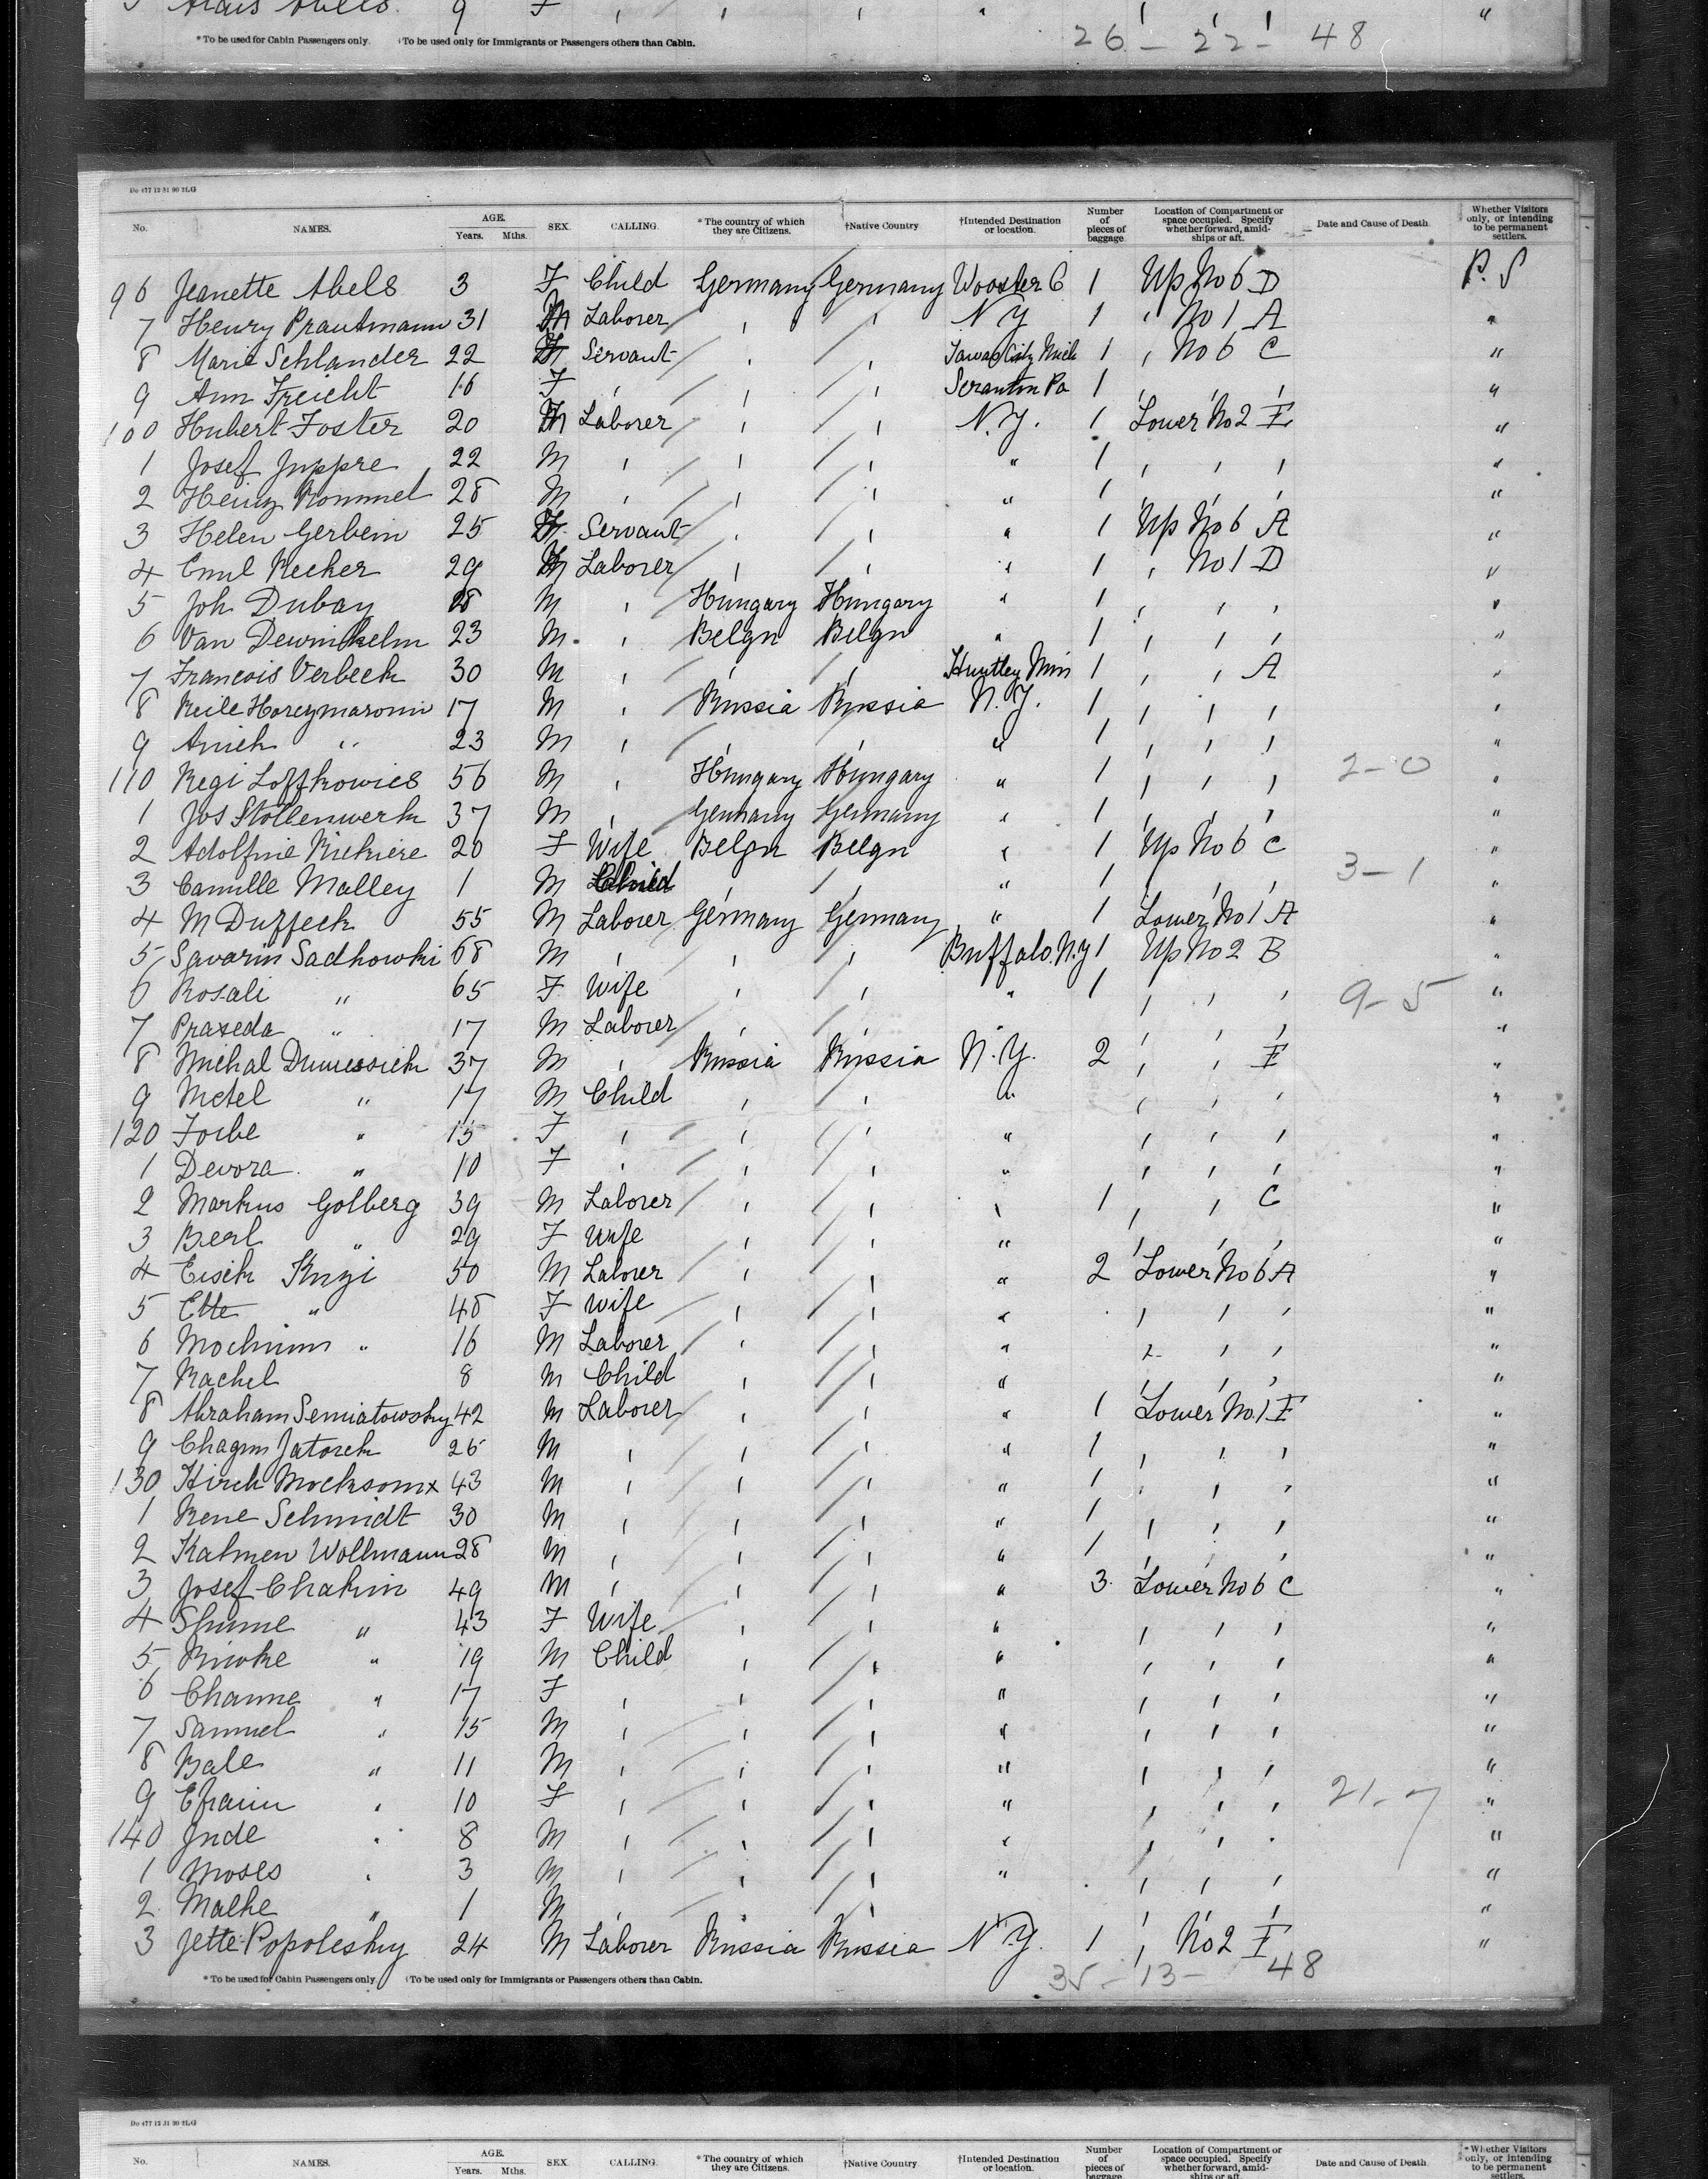 9 F ' ' ' ' ' ' "
* To be used for Cabin Passengers only. † To be used only for Immigrants or Passengers others than Cabin. 26 - 22 - 48
Do 477 12 31 90 2LG
No. NAMES. AGE. Years. Mths. SEX. CALLING. * The country of which they are Citizens. † Native Country †Intended Destination or location. Number of pieces of baggage Location of Compartment or space occupied. Specify whether forward, amidships or aft. Date and Cause of Death. Whether Visitors only, or intending to be permanent settlers.
96 Jeanette Abels 3 F Child Germany Germany Wooster O 1 Up No 6 D P. S
7 Henry Prautmann 31 M Laborer ' ' N Y 1 ' No 1 A "
8 Marie Schlander 22 F Servant ' ' Tawas City Mich 1 ' No 6 C "
9 Ann Freicht 16 F ' ' ' Scranton Pa 1 ' ' ' "
100 Hubert Foster 20 M Laborer ' ' N. Y. 1 Lower No 2 E "
1 Josef Juppre 22 M ' ' ' " 1 ' ' ' "
2 Heinz Rommel 28 M ' ' ' " 1 ' ' ' "
3 Helen Gerbein 25 F Servant ' ' " 1 Up No 6 A "
4 Emil Recker 29 M Laborer ' ' " 1 ' No 1 D "
5 Joh Dubay 28 M ' Hungary Hungary " 1 ' ' ' "
6 Van Dewinkelm 23 M ' Belgn Belgn " 1 ' ' ' "
7 Francois Verbeck 30 M ' ' ' Huntley Min 1 ' ' A "
8 17 M ' Russia Russia N. Y. 1 ' ' ' "
9 " 23 M ' ' ' " 1 ' ' ' "
110 Regi Loffkowies 56 M ' Hungary Hungary " 1 ' ' ' 2-0 "
1 Jos Stollenwerk 37 M ' Germany Germany " 1 ' ' ' "
2 Adolfine 20 F Wife Belgn Belgn " 1 Up No 6 C "
3 Camille Malley 1 M Child ' ' " 1 ' ' ' 3-1 "
4 M Duffeck 55 M Laborer Germany Germany " 1 Lower No 1 A "
5 Savarin Sadhowki 68 M ' ' ' Buffalo. N.Y 1 Up No 2 B "
6 Rosali " 65 F Wife ' ' " 1 ' ' ' 9-5 "
7 Praseda " 17 M Laborer ' ' " ' ' ' "
8 Michal 37 M ' Russia Russia N. Y. 2 ' ' E "
9 Metel " 17 M Child ' ' " ' ' ' "
120 " 15 F ' ' ' " ' ' ' "
1 Devora " 10 F ' ' ' " ' ' ' "
2 Markus Golberg 39 M Laborer ' ' " 1 ' ' C "
3 Berl " 29 F Wife ' ' " ' ' ' "
4 Eisik 50 M Laborer ' ' " 2 Lower No 6 A "
5 Ette " 48 F Wife ' ' " ' ' ' "
6 " 16 M Laborer ' ' " ' ' ' "
7 Rachel 8 M Child ' ' " ' ' ' "
8 Abraham Semiatowsky 42 M Laborer ' ' " 1 Lower No 1 E "
9 Jatorek 26 M ' ' ' " 1 ' ' ' "
130 Hirch 43 M ' ' ' " 1 ' ' ' "
1 Rene Schmidt 30 M ' ' ' " 1 ' ' ' "
2 Kalmen Wollmann 28 M ' ' ' " 1 ' ' ' "
3 Josef Chakin 49 M ' ' ' " 3 Lower No 6 C "
4 " 43 F Wife ' ' " ' ' ' "
5 Riwke " 19 M Child ' ' " ' ' ' "
6 Channe " 17 F ' ' ' " ' ' ' "
7 Samuel " 15 M ' ' ' " ' ' ' "
8 Bale " 11 M ' ' ' " ' ' ' "
9 Efraim " 10 F ' ' ' " ' ' ' 21-7 "
140 Jude " 8 M ' ' ' " ' ' ' "
1 Moses " 3 M ' ' ' " ' ' ' "
2 Malke " 1 M ' ' ' ' ' ' "
3 Jette Popolesky 24 M Laborer Russia Russia N. Y. 1 ' No 2 E "
* To be used for Cabin Passengers only. † To be used only for Immigrants or Passengers others than Cabin. 35 - 13 - 48
Do 477 12 31 90 2LG
No. NAMES. AGE. Years. Mths. SEX. CALLING. * The country of which they are Citizens. † Native Country. †Intended Destination or location. Number of pieces of baggage Location of Compartment or space occupied. Specify whether forward, amidships or aft. Date and Cause of Death. * Whether Visitors only, or intending to be permanent settlers.